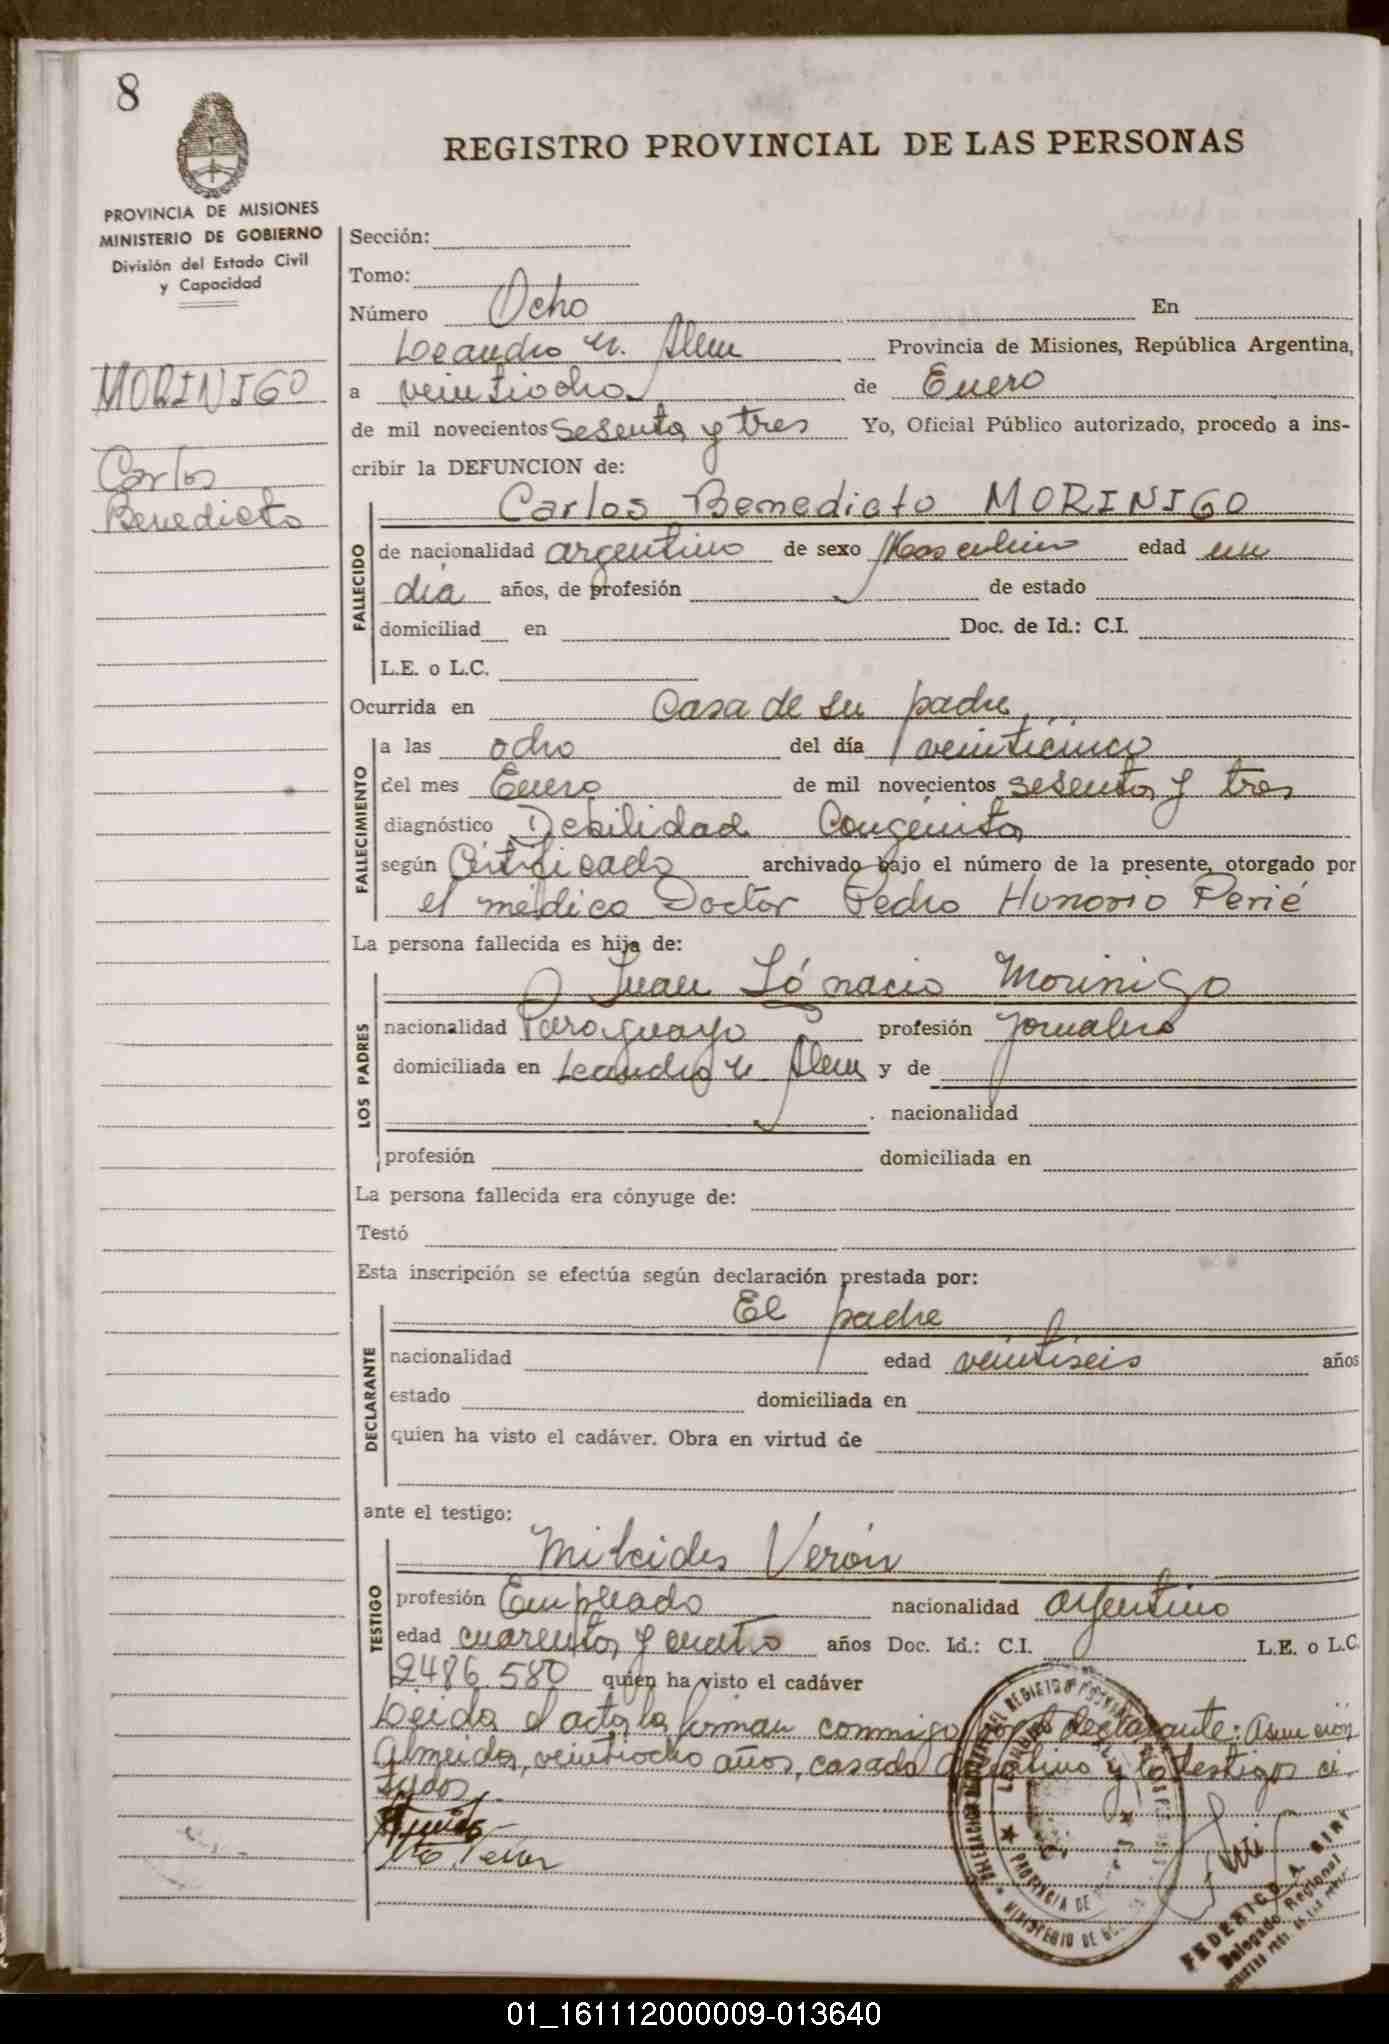 8
REGISTRO PROVINCIAL DE LAS PERSONAS
PROVINCIA DE MISIONES
MINISTERIO DE GOBIERNO
División del Estado Civil
y Capacidad
MORINIGO
Carlos
Benedicto
Sección:
Tomo:
Número Ocho En
Leandro N. Alem Provincia de Misiones, República Argentina,
a veintiocho de Enero
de mil novecientos sesenta y tres Yo, Oficial Público autorizado, procedo a ins-
cribir la DEFUNCION de:
Carlos Benedicto MORINIGO
FALLECIDO
de nacionalidad argentino de sexo Masculino edad un
día años, de profesión de estado
domiciliad en Doc. de Id.: C.I.
L.E. o L.C.
Ocurrida en Casa de su padre
FALLECIMIENTO
a las ocho del día veinticinco
del mes Enero de mil novecientos sesenta y tres
diagnóstico Debilidad Congénita
según Certificado archivado bajo el número de la presente, otorgado por
el médico Doctor Pedro Honorio Perié
La persona fallecida es hija de:
LOS PADRES
Juan Ignacio Morinigo
nacionalidad Paraguayo profesión Jornalero
domiciliada en Leandro N Alem y de
nacionalidad
profesión domiciliada en
La persona fallecida era cónyuge de:
Testó
Esta inscripción se efectúa según declaración prestada por:
DECLARANTE
El padre
nacionalidad edad veintiseis años
estado domiciliada en
quien ha visto el cadáver. Obra en virtud de
ante el testigo:
TESTIGO
Milcides Verón
profesión Empleado nacionalidad argentino
edad cuarenta y cuatro años Doc. Id.: C.I. L.E. o L.C.
2486.580 quien ha visto el cadáver
Leida el acta la firman conmigo por el declarante: Asunción
Almeida, veintiocho años, casado argentino y los testigos ci-
tados.
FEDERICO A.
Delegado Regional
01_161112000009-013640